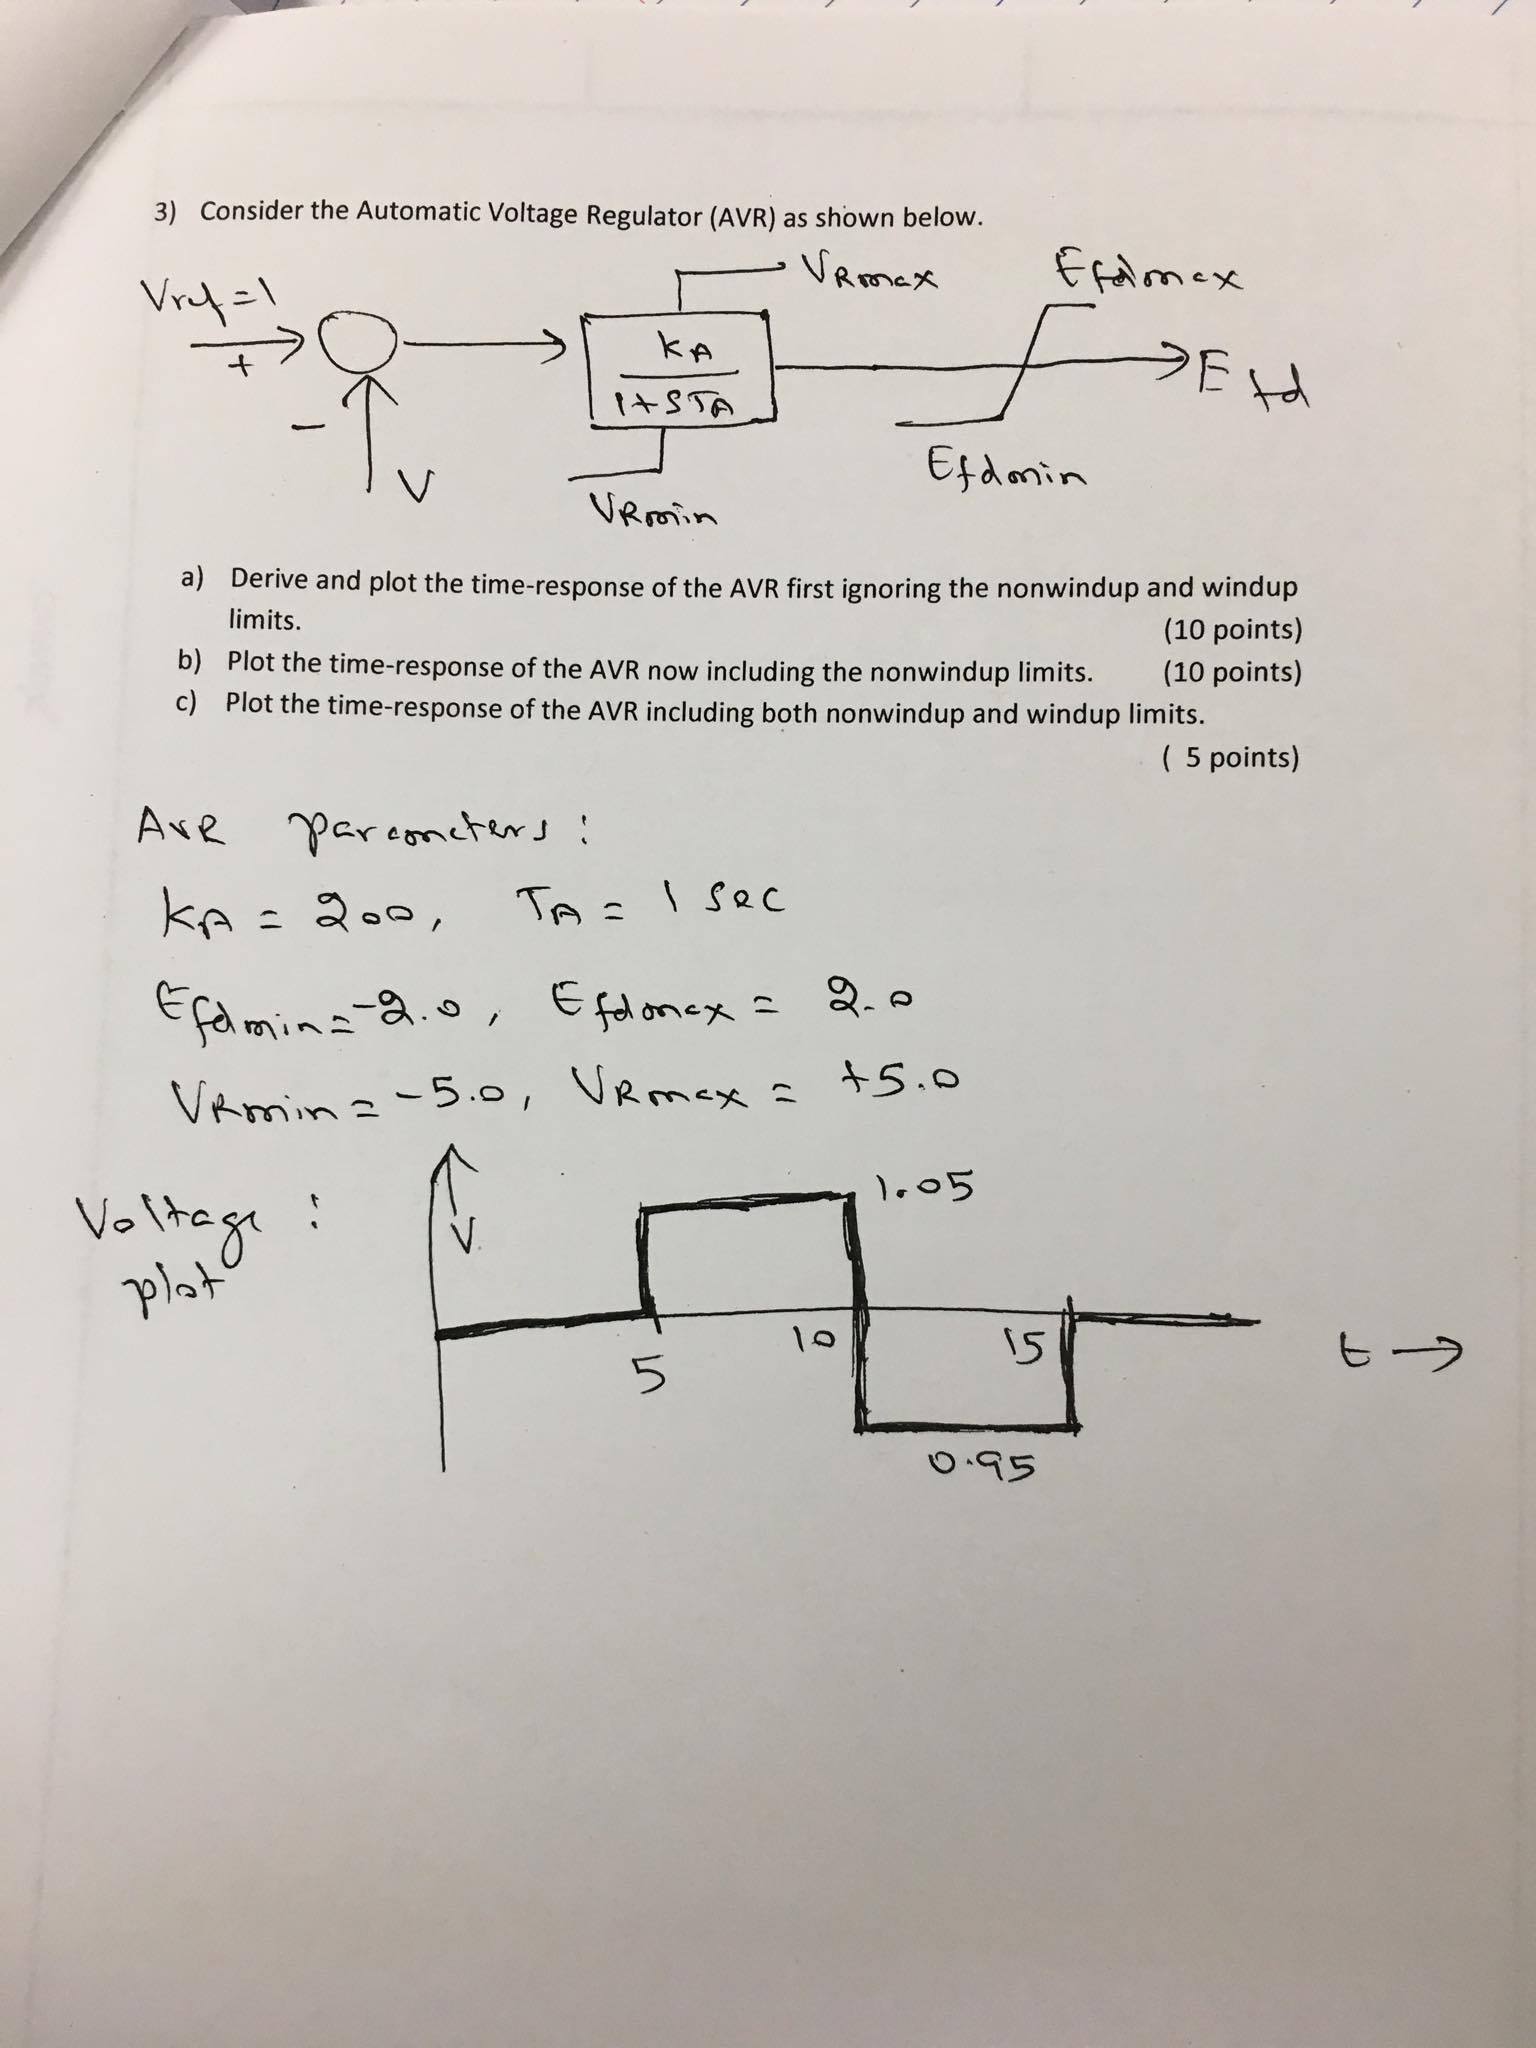 3) Consider the Automatic Voltage Regulator (AVR) as shown below.
Vref=1
+
-
V
VRmax
KA
1+STA
VRmin
Efdmax
Efd
Efdmin
a) Derive and plot the time-response of the AVR first ignoring the nonwindup and windup
limits. (10 points)
b) Plot the time-response of the AVR now including the nonwindup limits. (10 points)
c) Plot the time-response of the AVR including both nonwindup and windup limits.
( 5 points)
AVR parameters :
KA = 200, TA = 1 sec
Efdmin=-2.0, Efdmax = 2.0
VRmin = -5.0, VRmax = +5.0
Voltage :
plot
V
1.05
5
10
15
t →
0.95